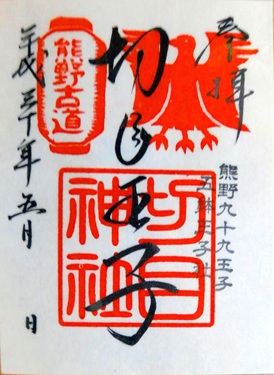 奉拝
熊野九十九王子
五躰王子社
切目王子
切目
神社
熊野古道
平成三十年五月 日